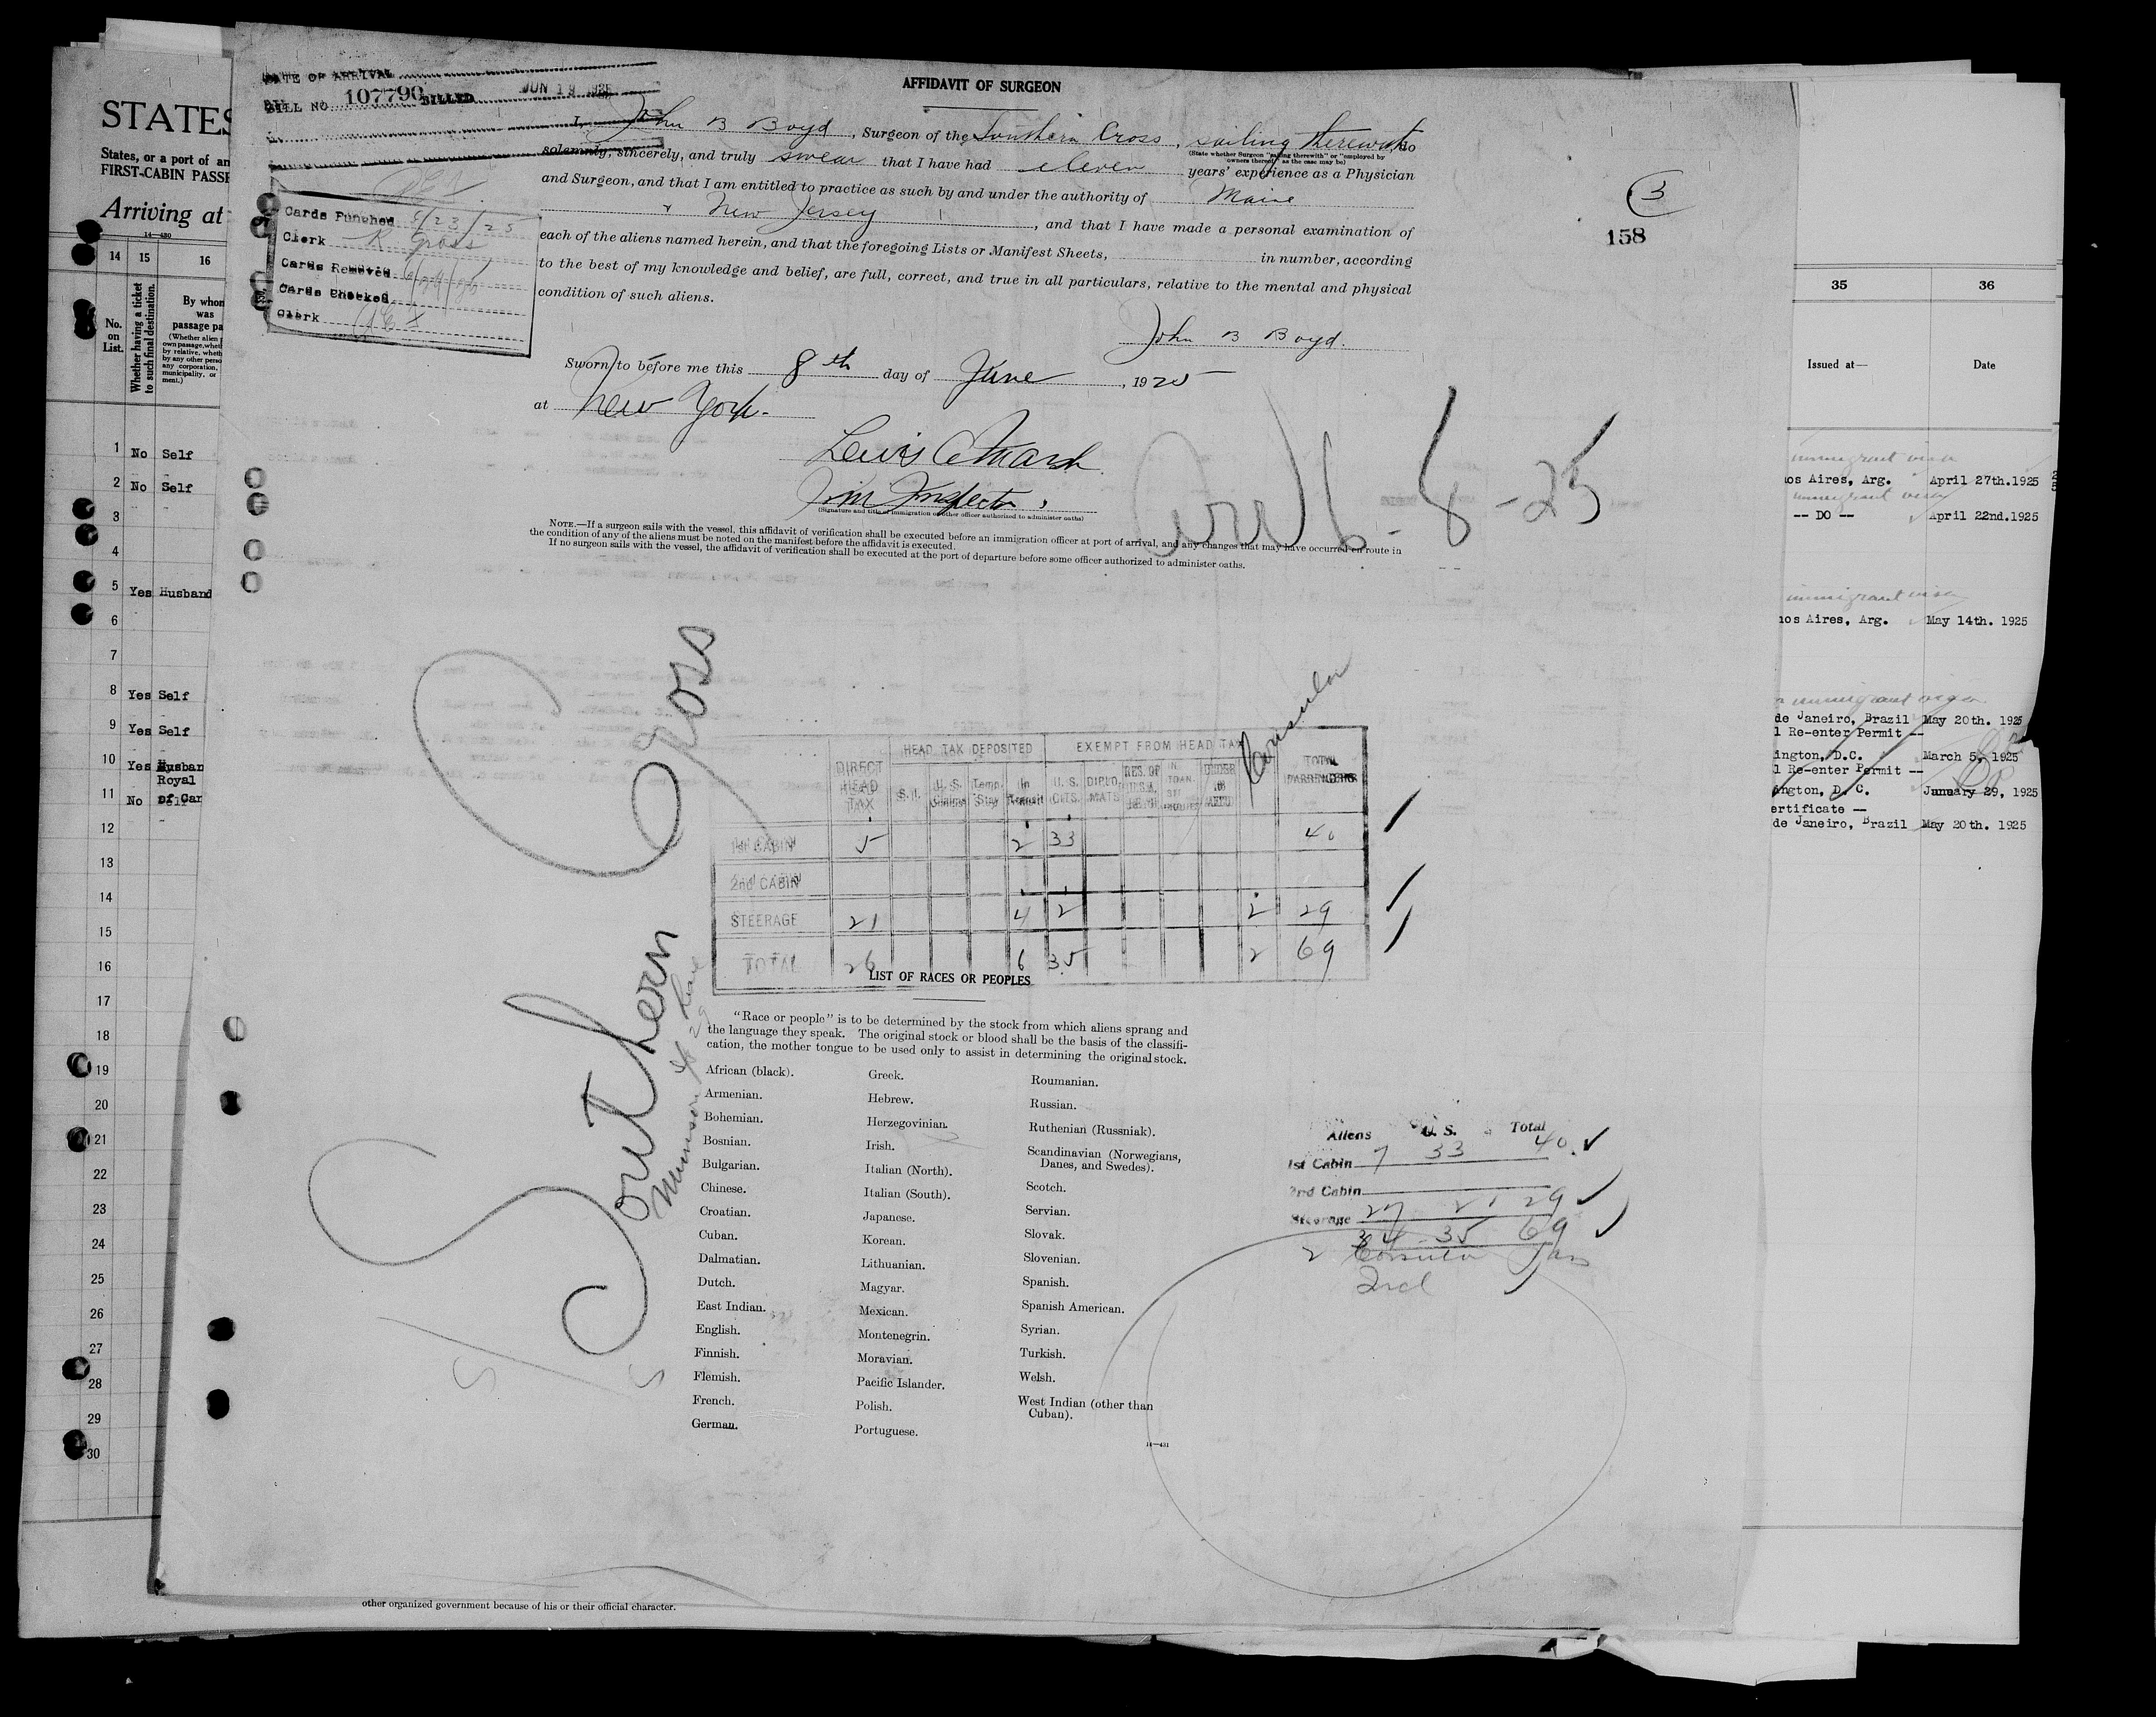 STATES
States, or a port of an
FIRST-CABIN PASSE
Arriving at
14—430
14 15 16
No. on List.
Whether having a ticket to such final destination.
By whom was passage pa
(Whether alien
own passage, wheth
by relative, wheth
by any other perso
any corporation,
municipality, or
ment.)
1 No Self
2 No Self
3
4
5 Yes Husband
6
7
8 Yes Self
9 Yes Self
10 Yes Husban
Royal
11 No of Car
12
13
14
15
16
17
18
19
20
21
22
23
24
25
26
27
28
29
30
DATE OF ARRIVAL
BILL NO. 107790 BILLED JUN 19 1925
Cards Punched 6/23/25
Clerk R Gross
Cards Removed
Cards Checked
Clerk
AFFIDAVIT OF SURGEON
I, John B Boyd, Surgeon of the Southern Cross, sailing therewith, do
(State whether Surgeon "sailing therewith" or "employed by owners thereof," as the case may be)
solemnly, sincerely, and truly swear that I have had eleven years' experience as a Physician
and Surgeon, and that I am entitled to practice as such by and under the authority of Maine
& New Jersey, and that I have made a personal examination of
each of the aliens named herein, and that the foregoing Lists or Manifest Sheets, in number, according
to the best of my knowledge and belief, are full, correct, and true in all particulars, relative to the mental and physical
condition of such aliens.
John B Boyd.
Sworn to before me this 8th day of June, 1925
at New York.
Lewis C Marsh
Imm Inspector,
(Signature and title of immigration or other officer authorized to administer oaths)
NOTE.—If a surgeon sails with the vessel, this affidavit of verification shall be executed before an immigration officer at port of arrival, and any changes that may have occurred en route in
the condition of any of the aliens must be noted on the manifest before the affidavit is executed.
If no surgeon sails with the vessel, the affidavit of verification shall be executed at the port of departure before some officer authorized to administer oaths.
Arr 6-8-25
3
158
Southern Cross
Munson
Consular
HEAD TAX DEPOSITED EXEMPT FROM HEAD TAX
DIRECT HEAD TAX S.I. U.S. Temp. Stay In Transit U.S. CITS. DIPLO. MATS RES. OF IN TRAN. UNDER 16 TOTAL PASSENGERS
1st CABIN 5 2 33 40
2nd CABIN
STEERAGE 21 4 2 2 29
TOTAL 26 6 35 2 69
LIST OF RACES OR PEOPLES
"Race or people" is to be determined by the stock from which aliens sprang and
the language they speak. The original stock or blood shall be the basis of the classifi-
cation, the mother tongue to be used only to assist in determining the original stock.
African (black).
Armenian.
Bohemian.
Bosnian.
Bulgarian.
Chinese.
Croatian.
Cuban.
Dalmatian.
Dutch.
East Indian.
English.
Finnish.
Flemish.
French.
German.
Greek.
Hebrew.
Herzegovinian.
Irish.
Italian (North).
Italian (South).
Japanese.
Korean.
Lithuanian.
Magyar.
Mexican.
Montenegrin.
Moravian.
Pacific Islander.
Polish.
Portuguese.
Roumanian.
Russian.
Ruthenian (Russniak).
Scandinavian (Norwegians,
Danes, and Swedes).
Scotch.
Servian.
Slovak.
Slovenian.
Spanish.
Spanish American.
Syrian.
Turkish.
Welsh.
West Indian (other than
Cuban).
14—431
Aliens U.S. Total
1st Cabin 7 33 40
2nd Cabin
Steerage 27 2 29
34 35 69
2 Consular
Incl
other organized government because of his or their official character.
35 36
Issued at— Date
immigrant visa
os Aires, Arg. April 27th.1925
immigrant visa
-- DO -- April 22nd.1925
immigrant visa
nos Aires, Arg. May 14th. 1925
immigrant visa
de Janeiro, Brazil May 20th. 1925
l Re-enter Permit --
ington, D.C. March 5, 1925
l Re-enter Permit --
ington, D.C. January 29, 1925
ertificate —
de Janeiro, Brazil May 20th. 1925